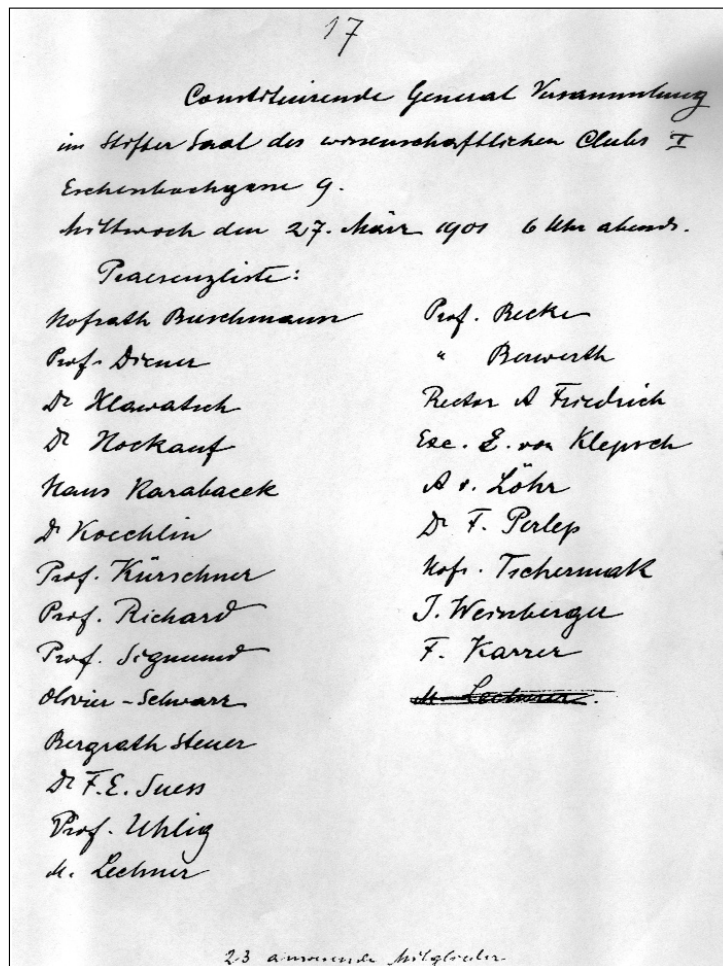 17
Constituirende General Versammlung
im Stifter Saal des wissenschaftlichen Clubs I
Eschenbachgasse 9.
Mittwoch den 27. März 1901 6 Uhr abends.
Praesenzliste:
Hofrath Buschmann
Prof. Diener
Dr Hlawatsch
Dr Hockauf
Hans Karabacek
Dr Koechlin
Prof. Kürschner
Prof. Richard
Prof. Sigmund
Olivier-Schwarz
Bergrath Steuer
Dr F.E. Suess
Prof. Uhlig
M. Lechner
Prof. Becke
" Berwerth
Rector A Friedrich
Exc. E. von Klepsch
A v. Löhr
Dr F. Perlep
Hofr. Tschermak
J. Weinberger
F. Karrer
M. Lechner.
23 anwesende Mitglieder